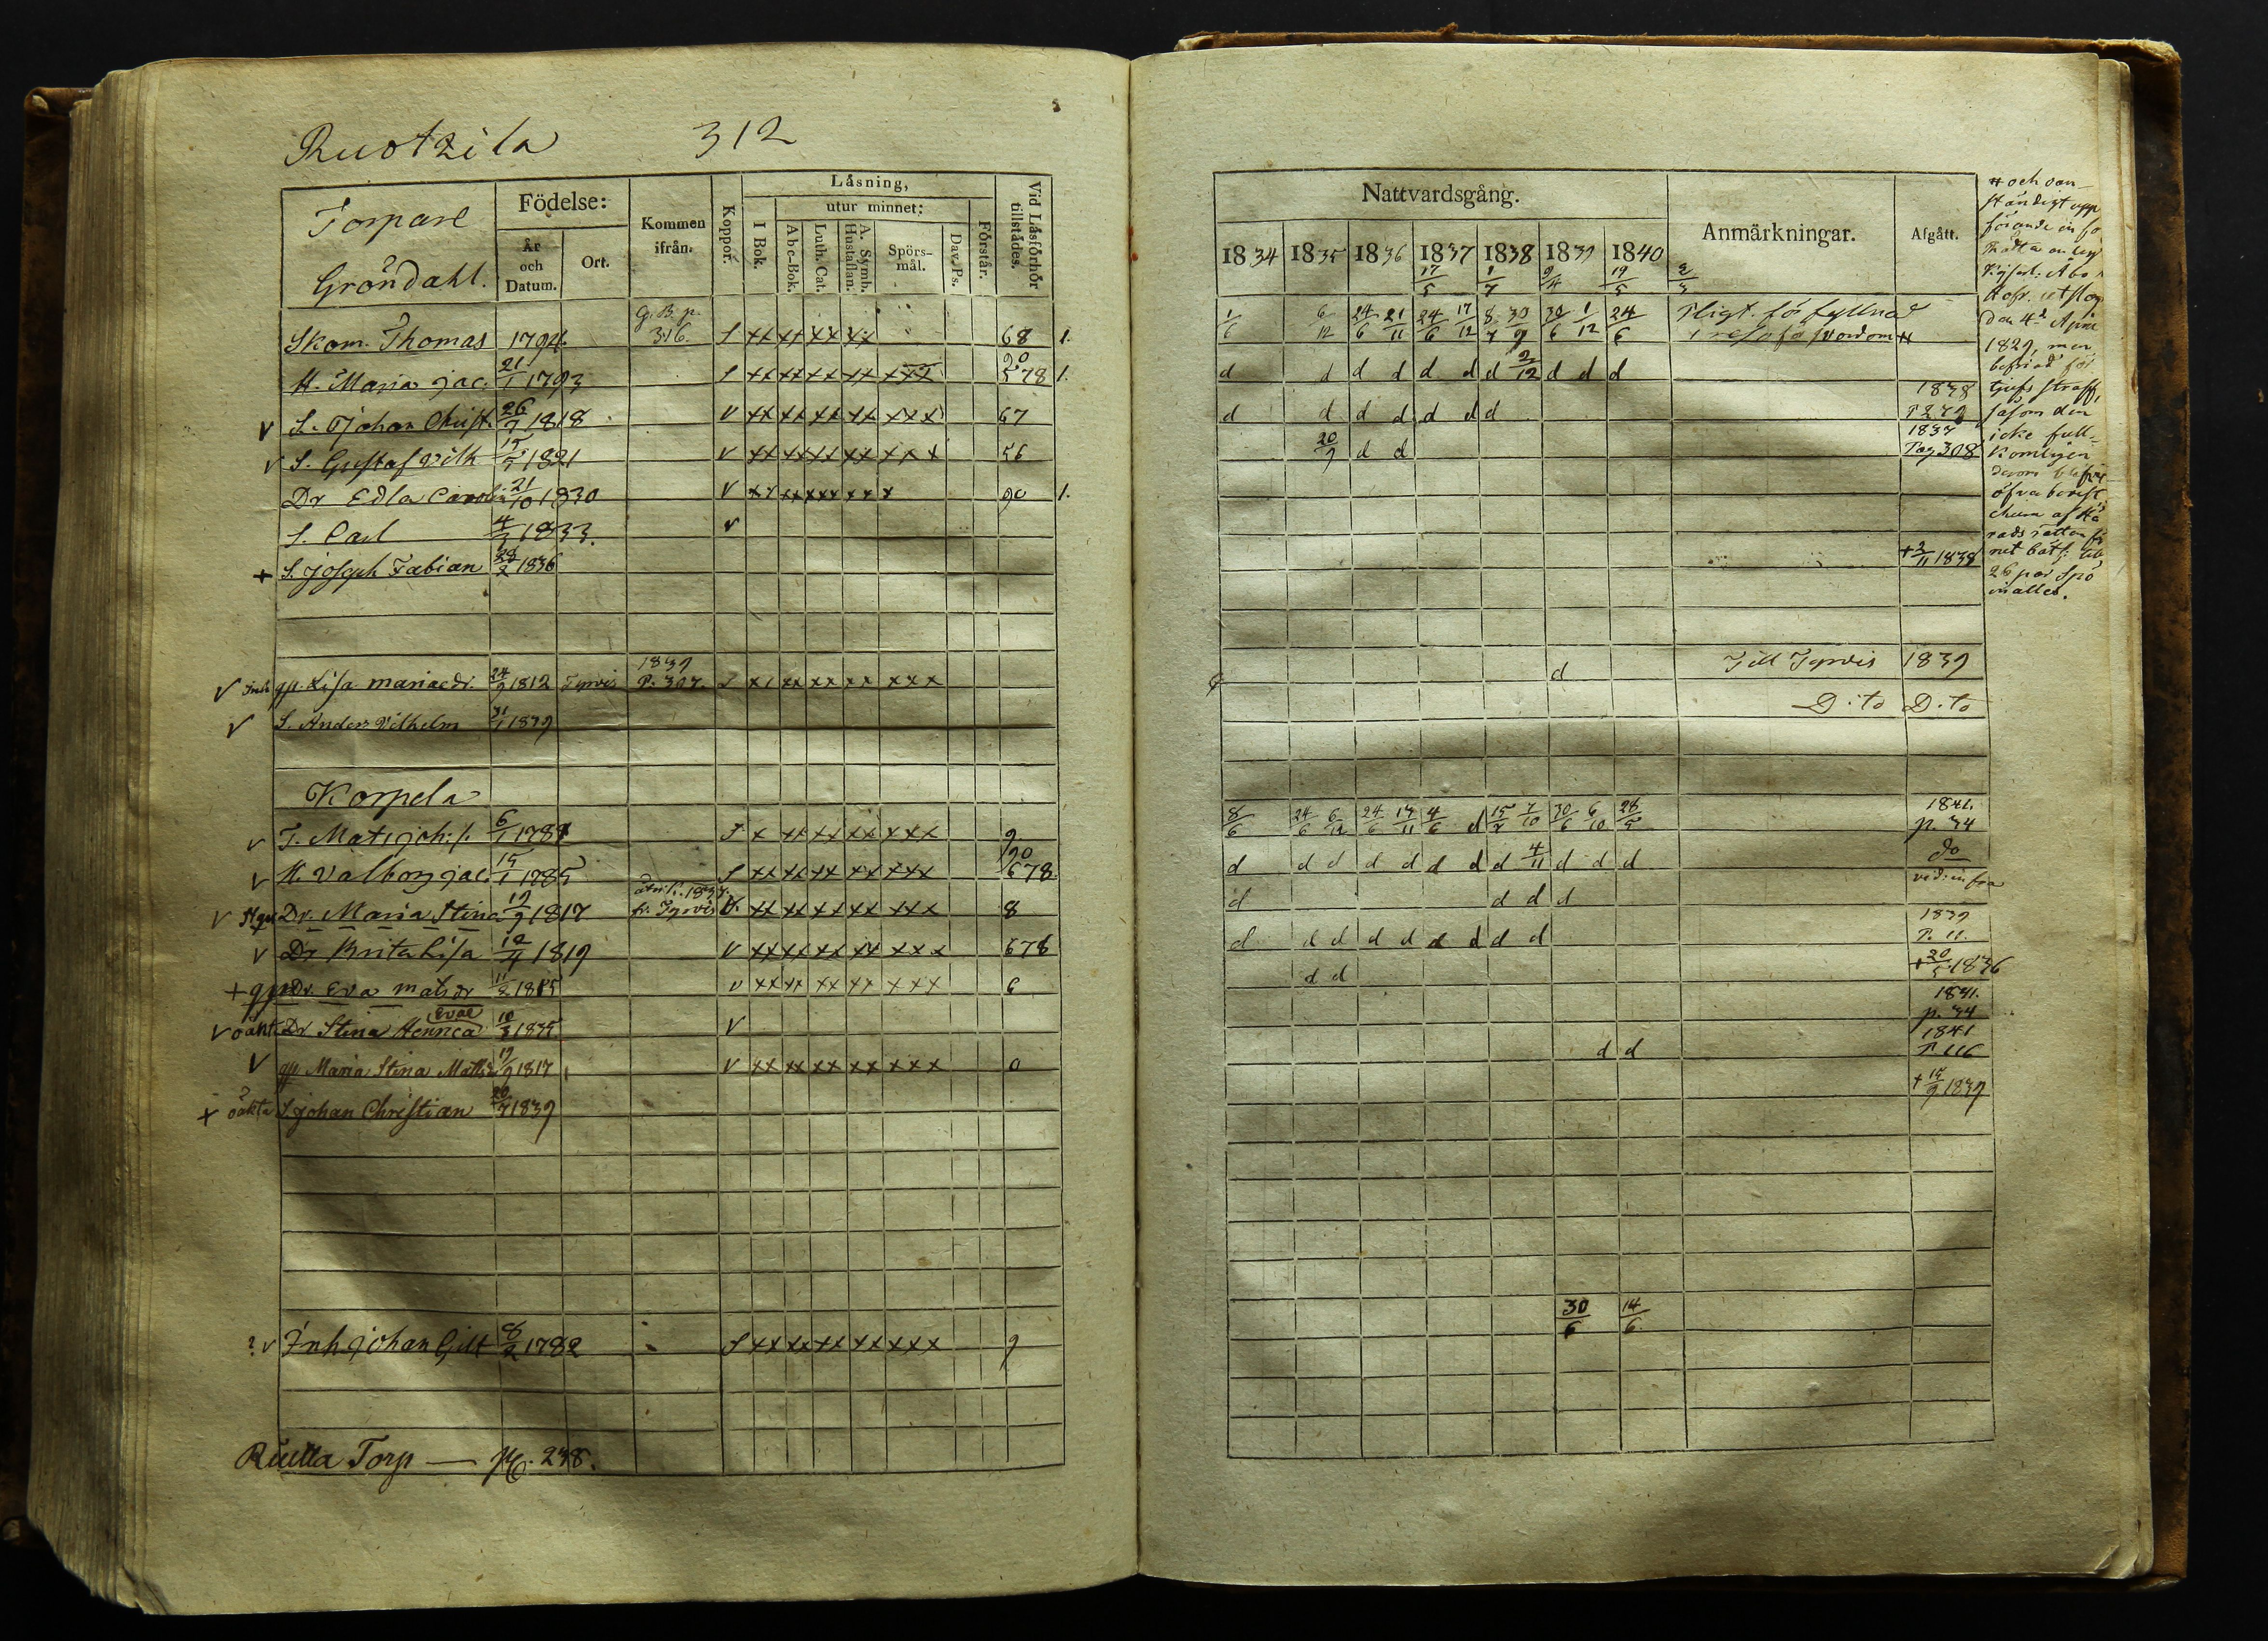 Ruotzila 312
Torpare
Gröndahl.
Födelse:
År och Datum.
Ort.
Kommen ifrån.
Koppor.
Låsning,
I Bok.
utur minnet:
Abc-Bok.
Luth. Cat.
A. Symb. Hustaflan.
Spörs-mål.
Dav. Ps.
Förstår.
Vid Låsförhör tillstådes.
Skom. Thomas 1794 G. B. p. 316. S xx xx xx xx 68 1.
H. Maria Jac. 21/1 1793 S xx xx xx xx xxx 90 578 1.
v S. Johan Christ. 26/7 1818 v xx xx xx xx xxx 67
v S. Gustaf Vilh 1821 v xx xx xx xx xxx 56
Dr Edla Carolin 21/10 1830 v xx xx xx xx x 90 1.
S. Carl 1833. v
+ S. Joseph Fabian 28/2 1836
v Inh qp. Lisa mariaedr. 24/9 1812 Tyrvis 1839 P. 307. S xx xx xx xxx
v S. Anders Vilhelm 31/1 1839
Korpela
v T. Mats Joh: s. 6/1 1788 S x xx xx xx xxx 9
v H. Valborg Jac. 15/1 1785 S xx xx xx xx xxx 90 678
v Dr. Maria Stina 19/9 1817 1837. fr. Tyrvis v. xx xx xx xx xxx 8
v Dr Brita Lisa 1819 v xx xx xx xx xxx 678
+ qp Dr. Eva matsdr 11/2 1815 v xx xx xx xx xxx 6
v oäkt. Dr Stina Henrica Evae 10/3 1835 v
v qp Maria Stina Matts 19/9 1817 v xx xx xx xx xxx 0
+ oäkta S Johan Christian 1839
? v Inh Johan Gilt 8/2 1782 S xx xx xx xx xxx 9
Ruutta Torp — 238.
Nattvardsgång.
Anmärkningar.
Afgått.
1834 1835 1836 1837 1838 1839 1840
17/5 1/7 9/4 19/5 2/3
1/6 6/12 24/6 21/11 24/6 17/12 30/9 30/6 1/12 24/6 Pligt. för fyllnad
d d d d d d d 2/12 d d d
d d d d d d d 1838
20/9 d d 1837 Pag 308
+ 2/11 1838
d Till Tyrvis 1839
D:to D:to
8/6 24/6 6/12 24/6 4/6 d 15/7 7/10 30/6 6/10 28/5 1841. p. 34
d d d d d d d d 4/11 d d d do
d d d d vid: infra
d d d d d d d d d 1839 P. 11.
d d + 20/5 1836
1841. p. 34
d d 1841 P 116
+ 15/9 1839
30/6 14/6
# och oan-
ständigt upp
förande in fo
den 4de April
1829, men
befriad för
tjufs straff,
såsom den
icke full-
komligen
26 par Spö
in alles.